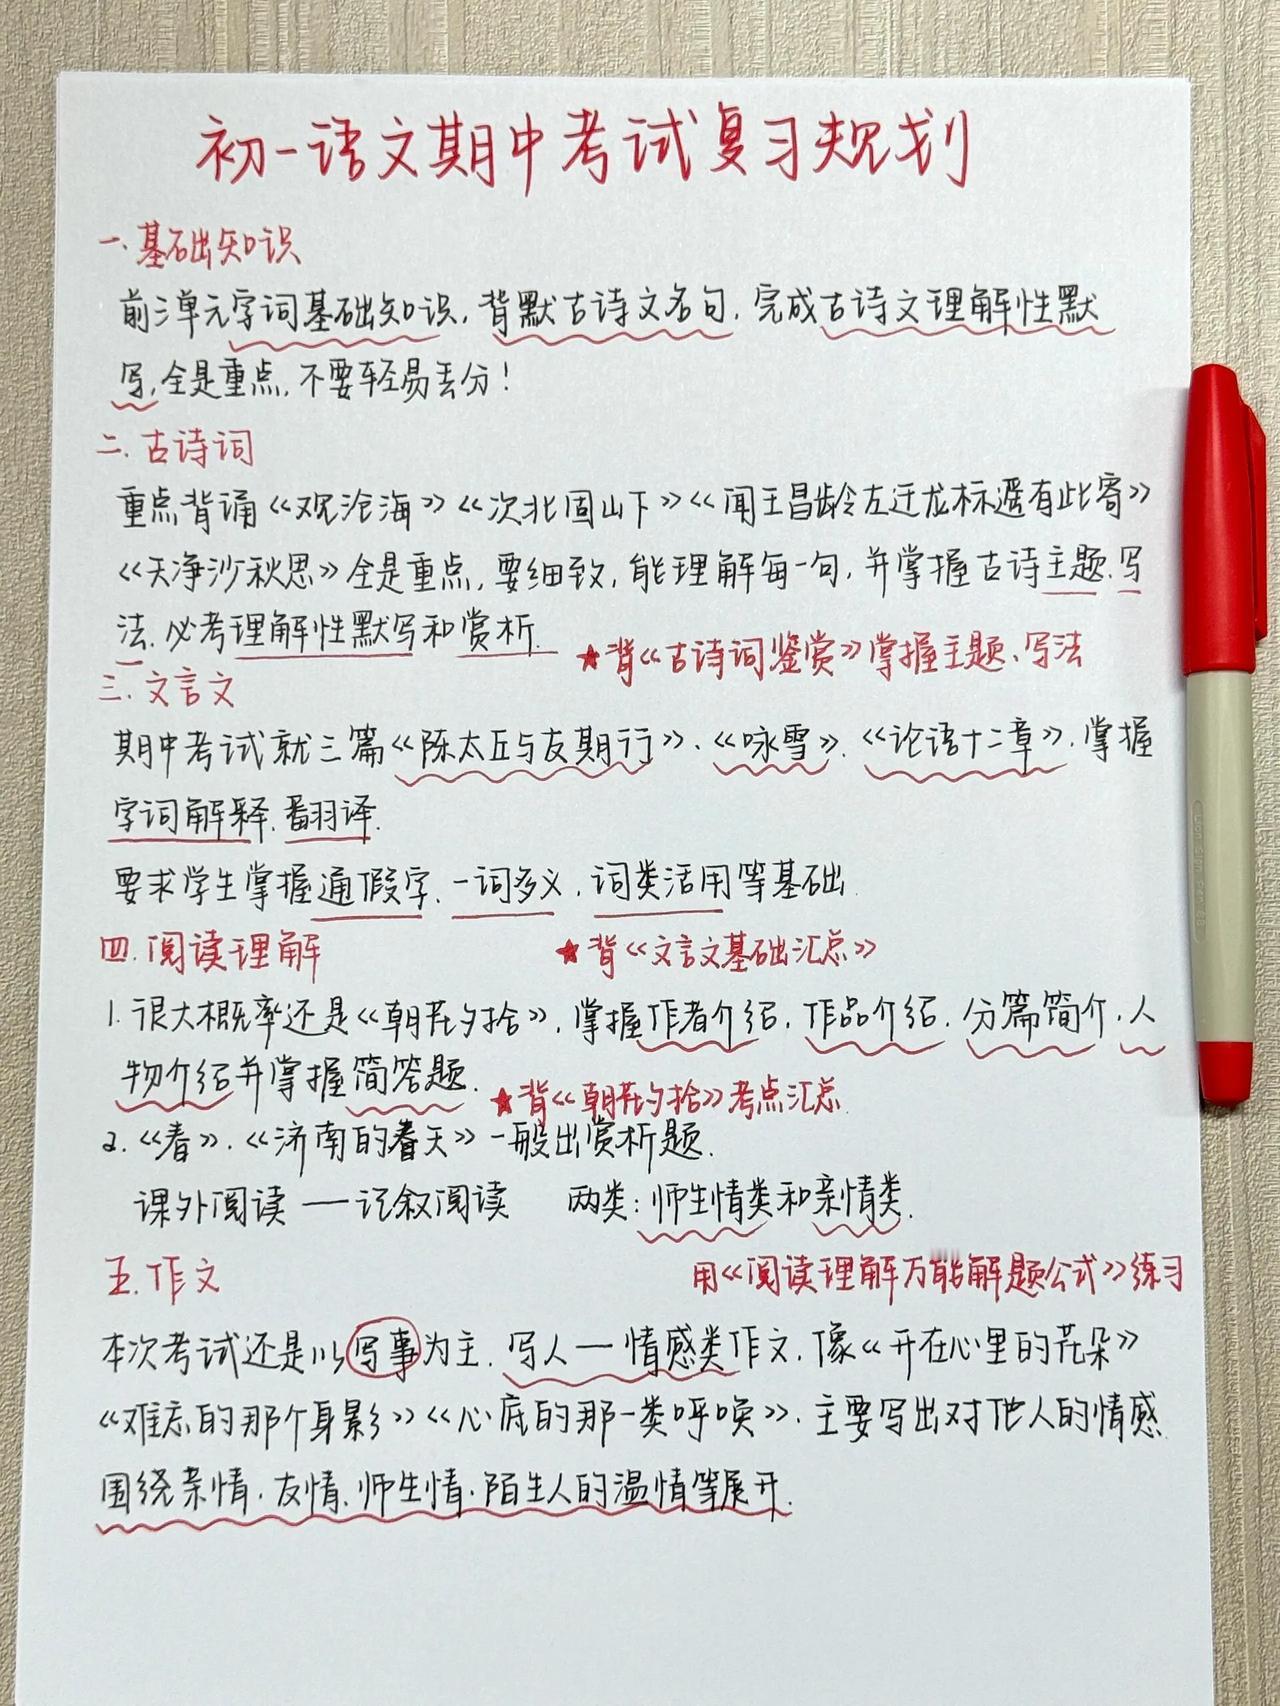 初一语文期中考试复习规划
一、基础知识
前三单元字词基础知识,背默古诗文名句,完成古诗文理解性默
写,全是重点,不要轻易丢分!
二.古诗词
重点背诵《观沧海》《次北固山下》《闻王昌龄左迁龙标遥有此寄》
《天净沙秋思》全是重点,要细致,能理解每一句,并掌握古诗主题、写
法.必考理解性默写和赏析.
★背《古诗词鉴赏》掌握主题、写法
三.文言文
期中考试就三篇《陈太丘与友期行》、《咏雪》、《论语十二章》,掌握
字词解释、翻译.
要求学生掌握通假字、一词多义、词类活用等基础
四.阅读理解
★背《文言文基础汇总》
1.很大概率还是《朝花夕拾》,掌握作者介绍,作品介绍,分篇简介,人
物介绍并掌握简答题.
★背《朝花夕拾》考点汇总
2.《春》、《济南的春天》一般出赏析题.
课外阅读——记叙阅读 两类:师生情类和亲情类.
五.作文
用《阅读理解万能解题公式》练习
本次考试还是以写事为主.写人—情感类作文,像《开在心里的花朵》
《难忘的那个身影》《心底的那一类呼唤》,主要写出对他人的情感
围绕亲情、友情、师生情、陌生人的温情等展开.